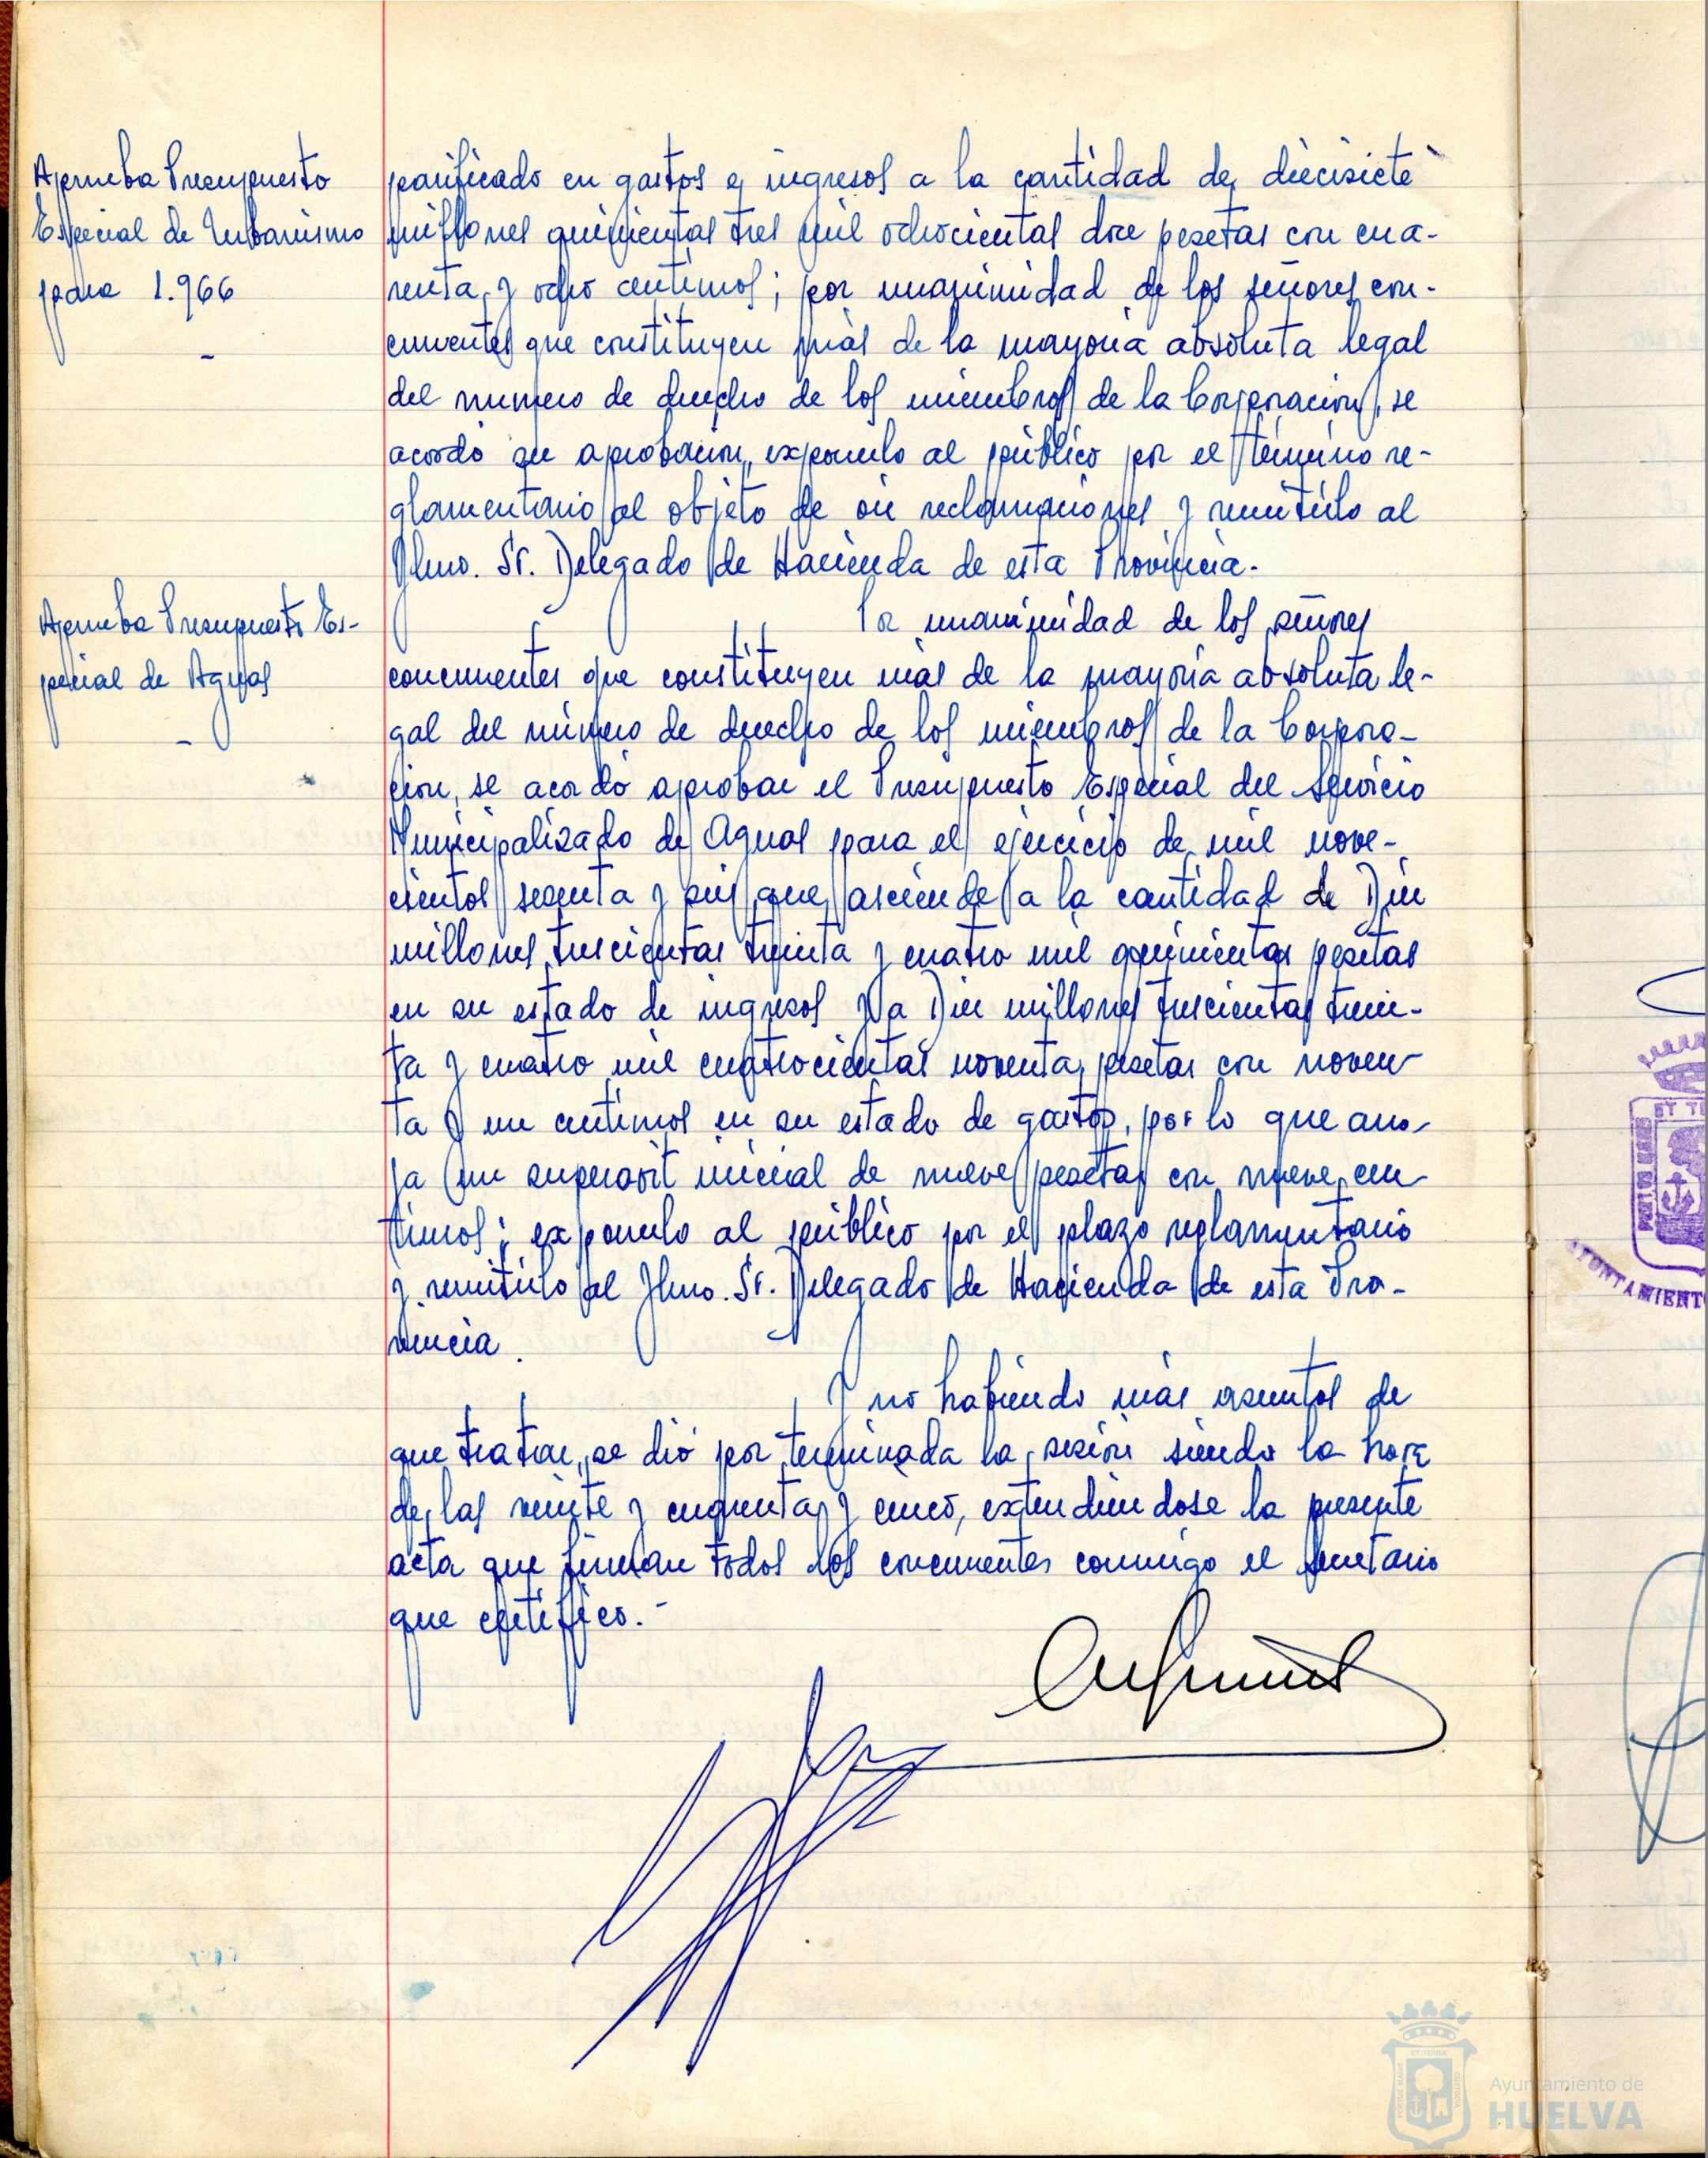 Aprueba Presupuesto
Especial de Urbanismo
para 1.966
-
parificado en gastos e ingresos a la cantidad de diecisiete
millones quinientas tres mil ochocientas doce pesetas con cua-
renta y ocho centimos; por unanimidad de los señores con-
currentes que constituyen más de la mayoria absoluta legal
del numero de derecho de los miembros de la Corporacion, se
acordó su aprobacion, exponerlo al público por el término re-
glamentario al objeto de oir reclamaciones y remitirlo al
Ylmo. Sr. Delegado de Hacienda de esta Provincia.-
Aprueba Presupuesto Es-
pecial de Aguas
-
Por unanimidad de los señores
concurrentes que constituyen más de la mayoría absoluta le-
gal del número de derecho de los miembros de la Corpora-
cion, se acordó aprobar el Presupuesto Especial del Servicio
Municipalizado de Aguas para el ejercicio de mil nove-
cientos sesenta y seis que asciende a la cantidad de Diez
millones trescientas treinta y cuatro mil quinientas pesetas
en su estado de ingresos y a Diez millones trescientas trein-
ta y cuatro mil cuatrocientas noventa pesetas con noven-
ta y un centimos en su estado de gastos, por lo que arro-
ja un superavit inicial de nueve pesetas con nueve cen-
timos; exponerlo al público por el plazo reglamentario
y remitirlo al Ylmo. Sr. Delegado de Hacienda de esta Pro-
vincia.
Y no habiendo más asuntos de
que tratar, se dió por terminada la sesión siendo la hora
de las veinte y cincuenta y cinco, extendiendose la presente
acta que firman todos los concurrentes conmigo el Secretario
que certifico.-
ET TE
PORTUS MARIS
AYUNTAMIENTO
Ayuntamiento de
HUELVA